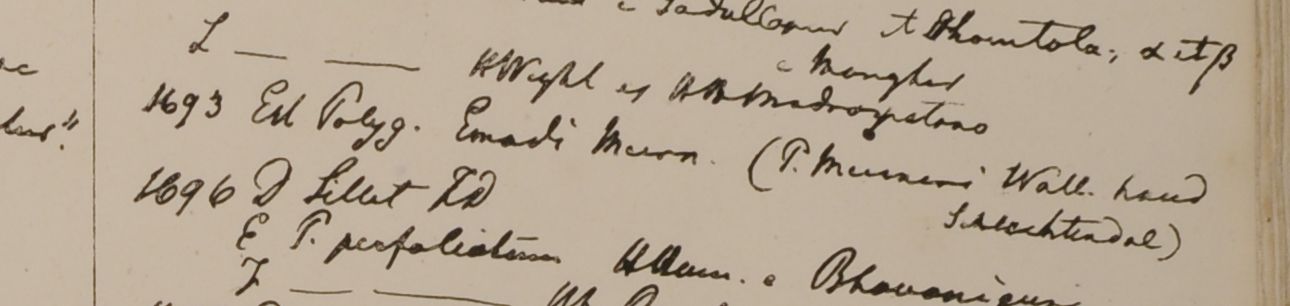 e Sadullapur et Dhomtola; α et β
L — — HWight es HB Madraspatano
e Mongher
1693 Est Polyg. Emodi Meisn. (P. Meisneri Wall. haud
Schlechtendal)
1696 D Sillet FD
E P. perfoliatum HHam. e Bhovanigun
F — —